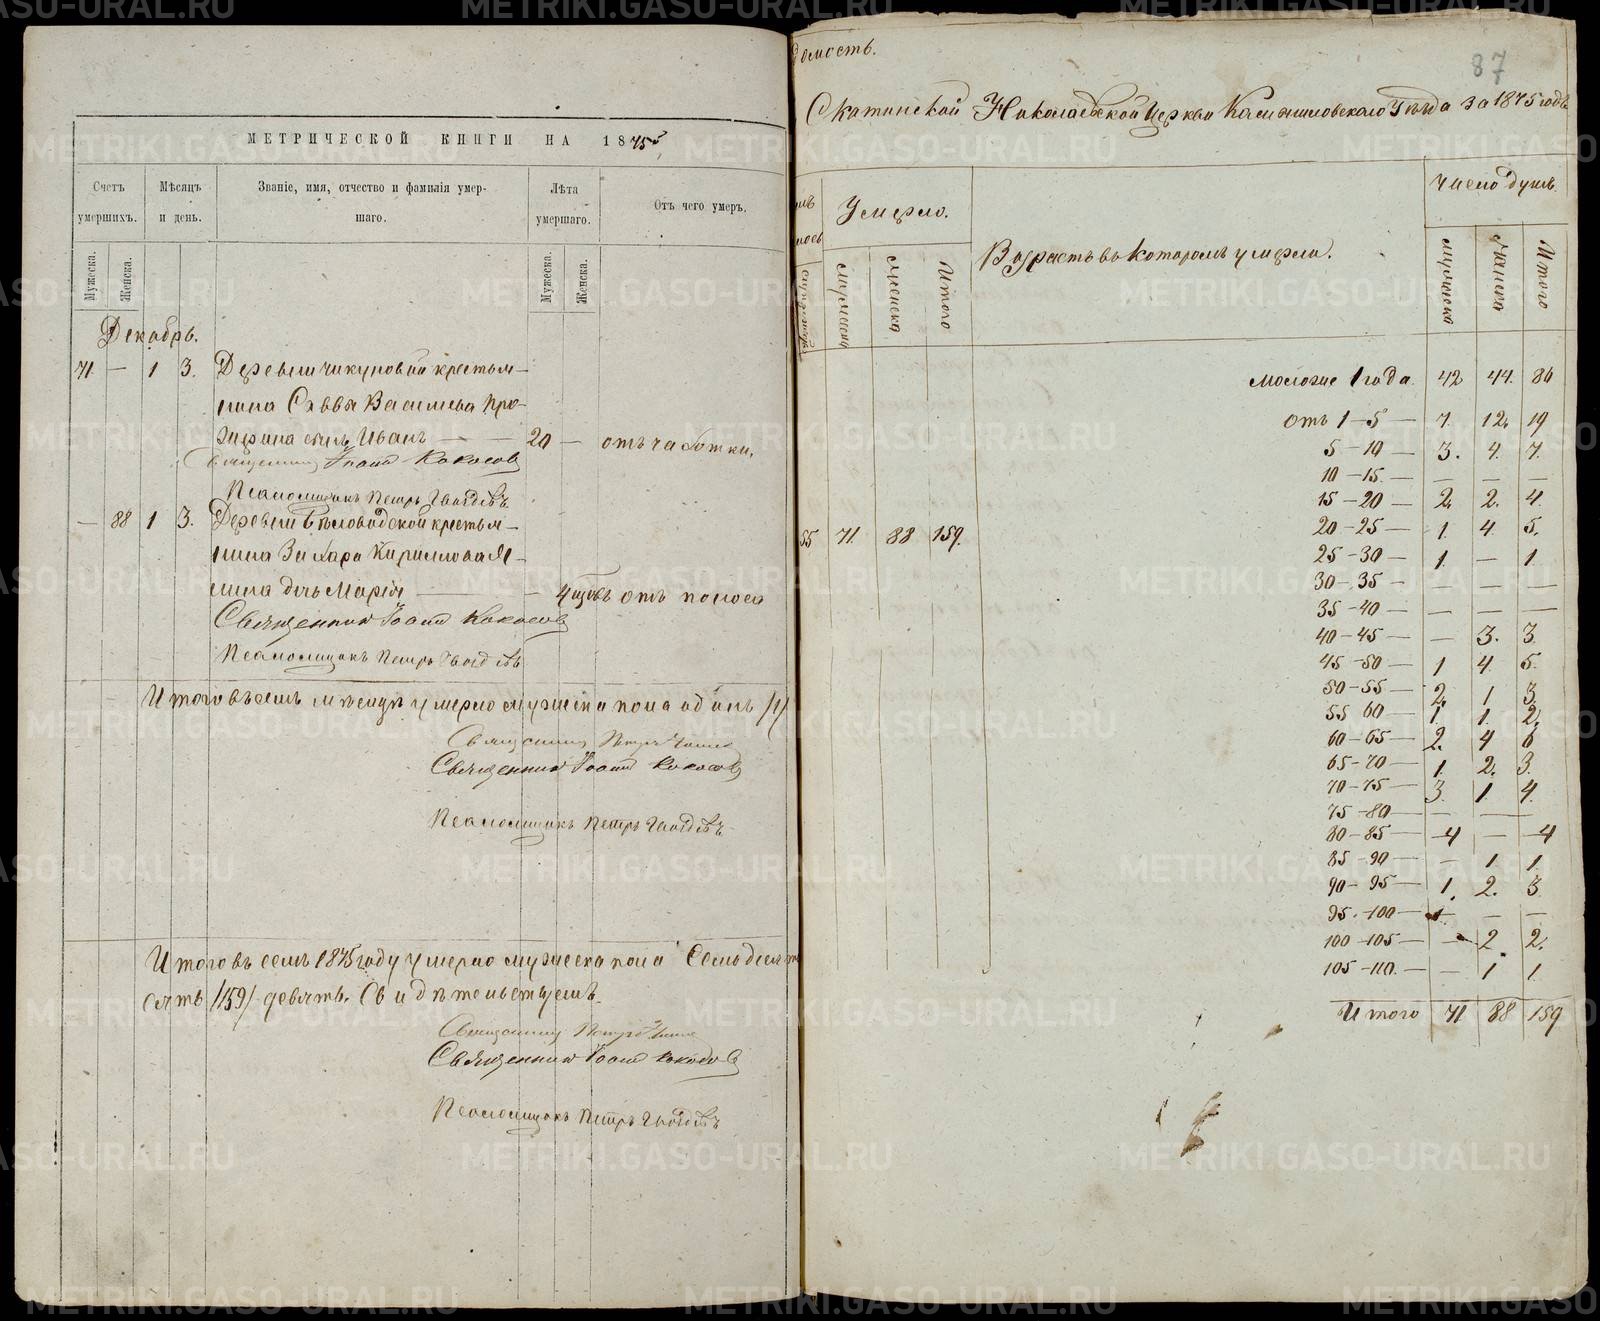 МЕТРИЧЕСКОЙ КНИГИ НА 1875
Счетъ умершихъ.
Мѣсяцъ и день.
Званіе, имя, отчество и фамилія умершаго.
Лѣта умершаго.
Отъ чего умеръ.
Мужеска.
Женска.
Мужеска.
Женска.
Декабрь.
71 — 1 3. Деревни Чикуновой крестьян-
нина Саввы Васильева Про-
сынъ Иванъ — — 20 — отъ чахотки.
Священник Іоанн Кокосов
Псаломщикъ Петръ Гвоздевъ
— 88 1 3. Деревни Бѣловодской крестьян-
нина Захара Кириллова
дочь Марія — — 4 отъ поноса
Священник Іоанн Кокосов
Псаломщикъ Петръ Гвоздевъ
Итого въ семъ мѣсяцѣ умерло мужеска пола одинъ /1/
Священник Петръ
Священник Іоанн Кокосов
Псаломщикъ Петръ Гвоздевъ
Итого въ семъ 1875 году умерло мужеска пола Семьдесят
/159/ девять. Свидѣтельствуемъ.
Священник Петръ
Священник Іоанн Кокосов
Псаломщикъ Петръ Гвоздевъ
домость.
87
Скатинской Николаевской Церкви Камышловскаго Уѣзда за 1875 годъ
Умерло.
Возрастъ въ которомъ умерли.
Число душъ.
мужеска
женска
Итого
мужеска
женска
Итого
55 71 88 159.
моложе 1 года. 42 44. 86
отъ 1—5 — 7. 12. 19
5—10 — 3. 4. 7.
10—15. — — — —
15—20 — 2. 2. 4.
20—25 — 1. 4. 5.
25—30 — 1 — 1.
30—35 — — — —
35—40 — — — —
40—45 — — 3. 3.
45—50 — 1 4. 5.
50—55 — 2. 1 3.
55 60 — 1. 1. 2.
60—65 — 2. 4 6
65—70 — 1. 2. 3.
70—75 — 3. 1. 4.
75—80 — — —
80—85 — 4 — 4
85—90 — — 1 1.
90—95 — 1. 2. 3
95.—100 — 1. — —
100—105 — — 2 2.
105—110. — — 1 1.
Итого 71 88 159
METRIKI.GASO-URAL.RU